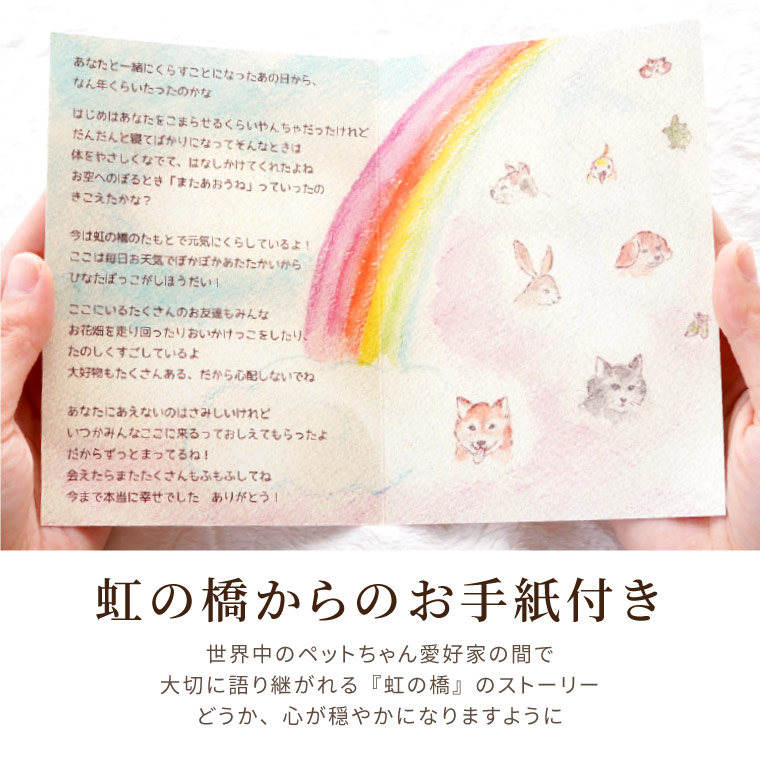 あなたと一緒にくらすことになったあの日から、
なん年くらいたったのかな
はじめはあなたをこまらせるくらいやんちゃだったけれど
だんだんと寝てばかりになってそんなときは
体をやさしくなでて、はなしかけてくれたよね
お空へのぼるとき「またあおうね」っていったの
きこえたかな？
今は虹の橋のたもとで元気にくらしているよ！
ここは毎日お天気でぽかぽかあたたかいから
ひなたぼっこがしほうだい！
ここにいるたくさんのお友達もみんな
お花畑を走り回ったりおいかけっこをしたり、
たのしくすごしているよ
大好物もたくさんある、だから心配しないでね
あなたにあえないのはさみしいけれど
いつかみんなここに来るっておしえてもらったよ
だからずっとまってるね！
会えたらまたたくさんもふもふしてね
今まで本当に幸せでした　ありがとう！
虹の橋からのお手紙付き
世界中のペットちゃん愛好家の間で
大切に語り継がれる『虹の橋』のストーリー
どうか、心が穏やかになりますように